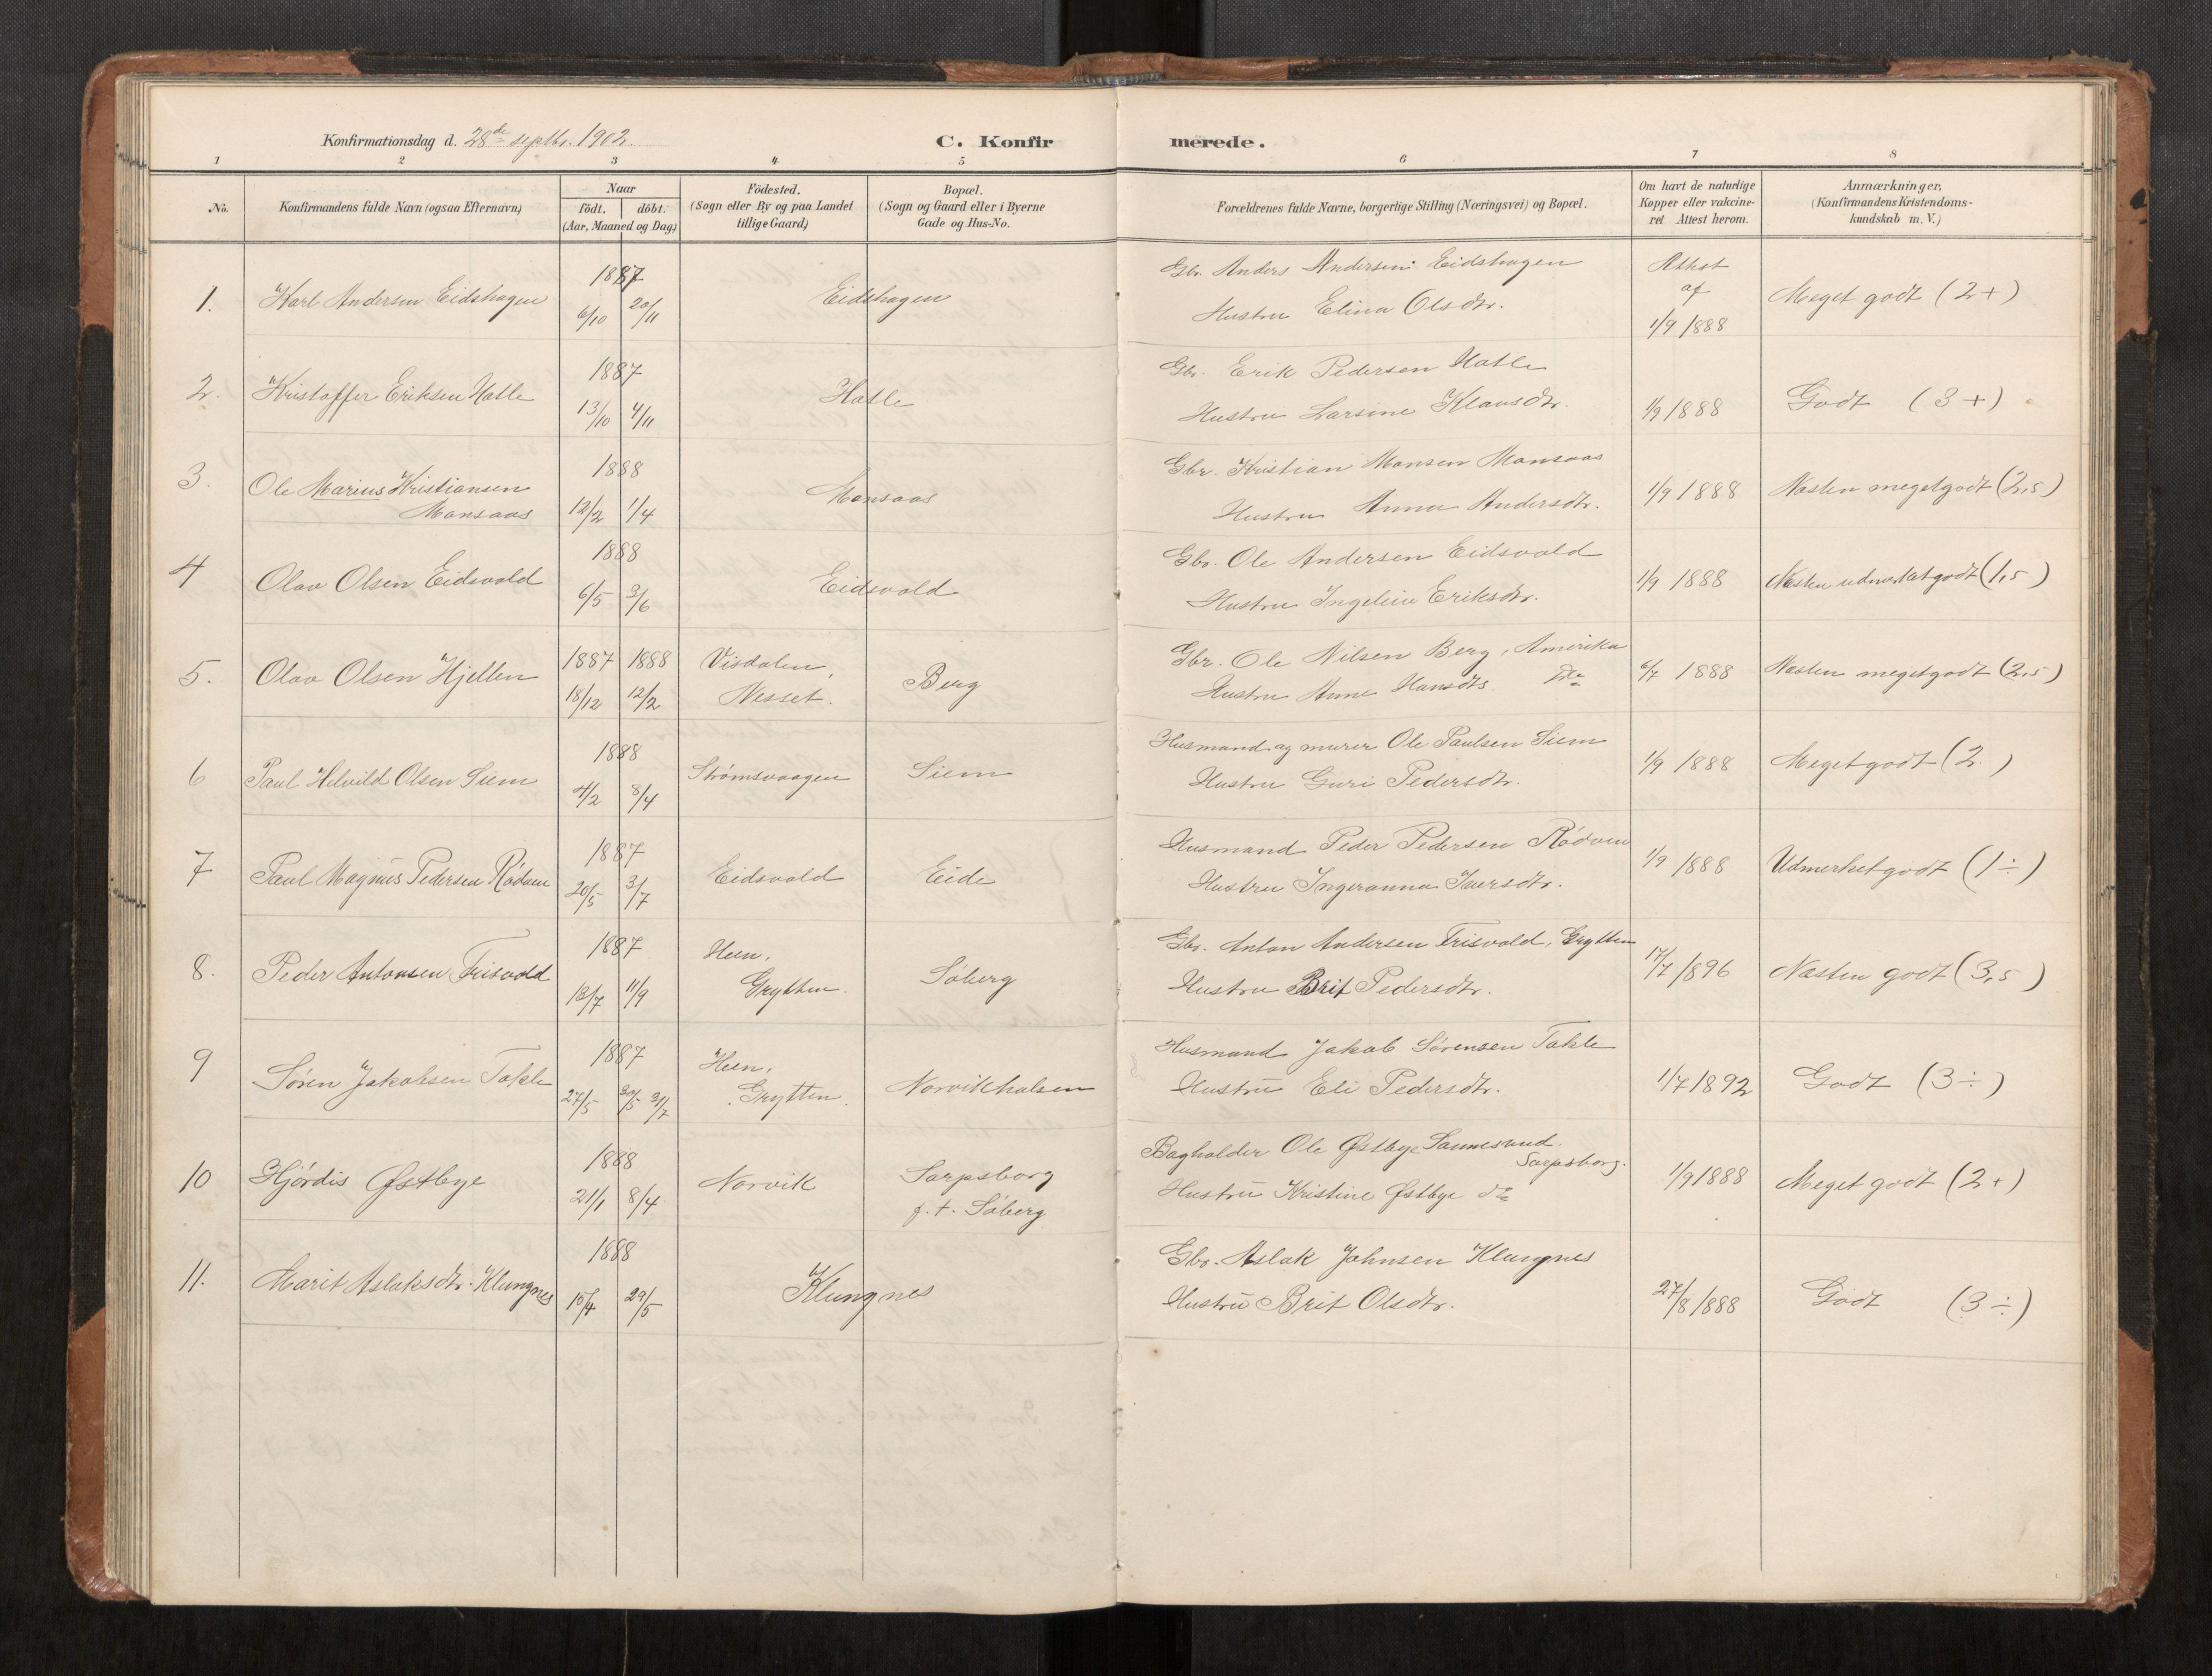 Konfirmationsdag d. 28de septbr. 1902. C. Konfirmerede.
1 2 3 4 5 6 7 8
No.
Konfirmandens fulde Navn (ogsaa Efternavn)
Naar
födt. döbt.
(Aar, Maaned og Dag)
Födested.
(Sogn eller By og paa Landet
tillige Gaard)
Bopæl.
(Sogn og Gaard eller i Byerne
Gade og Hus-No.
Forældrenes fulde Navne, borgerlige Stilling (Næringsvei) og Bopæl.
Om havt de naturlige
Kopper eller vakcine-
ret Attest herom.
Anmærkninger,
(Konfirmandens Kristendoms-
kundskab m. V.)
1. Karl Andersen Eidshagen 1887 6/10 20/11 Eidshagen
Gbr. Anders Andersen Eidshagen
Hustru Elina Olsdtr.
Attest
af
1/9 1888
Meget godt (2+)
2. Kristoffer Eriksen Hatle 1887 13/10 4/11 Hatle
Gbr. Erik Pedersen Hatle
Hustru Larsine Klausdtr.
1/9 1888 Godt (3+)
3. Ole Marius Kristiansen
Monsaas
1888 12/2 1/4 Monsaas
Gbr. Kristian Monsen Monsaas
Hustru Anna Andersdtr.
1/9 1888 Næsten meget godt (2,5)
4 Olav Olsen Eidsvold 1888 6/5 3/6 Eidsvold
Gbr. Ole Andersen Eidsvold
Hustru Ingeline Eriksdtr.
1/9 1888 Næsten udmerket godt (1,5)
5. Olav Olsen Hjellen 1887 18/12 1888 12/2
Visdalen,
Nesset.
Berg
Gbr. Ole Nilsen Berg, Amerika
Hustru Anne Hansdtr. do
6/7 1888 Næsten meget godt (2,5)
6 Paul Hilvild Olsen Siem 1888 4/2 8/4 Strømsvaagen Siem
Husmand og murer Ole Paulsen Siem
Hustru Guri Pedersdtr.
1/9 1888 Meget godt (2.)
7 Paul Magnus Pedersen Rödven 1887 20/5 3/7 Eidsvold Eide
Husmand Peder Pedersen Rödven
Hustru Ingeranna Iversdtr.
1/9 1888 Udmerket godt (1÷)
8. Peder Antonsen Frisvold 1887 13/7 11/9
Heen,
Grytten.
Söberg
Gbr. Anton Andersen Frisvold, Grytten
Hustru Brit Pedersdtr.
17/7 1896 Næsten godt (3,5)
9 Sören Jakobsen Tokle 1887 27/5 30/5 31/7
Heen,
Grytten.
Norvikhalsen
Husmand Jakob Sörensen Tokle
Hustru Eli Pedersdtr.
1/7 1892 Godt (3÷)
10 Hjördis Østbye 1888 21/1 8/4 Norvik
Sarpsborg
f. t. Söberg
Bogholder Ole Østbye Sannesund.
Sarpsborg.
Hustru Kristine Østbye do
1/9 1888 Meget godt (2+)
11. Marit Aslaksdtr. Klungnes 1888 15/4 29/5 Klungnes
Gbr. Aslak Johnsen Klungnes
Hustru Brit Olsdtr.
27/8 1888 Godt (3÷)